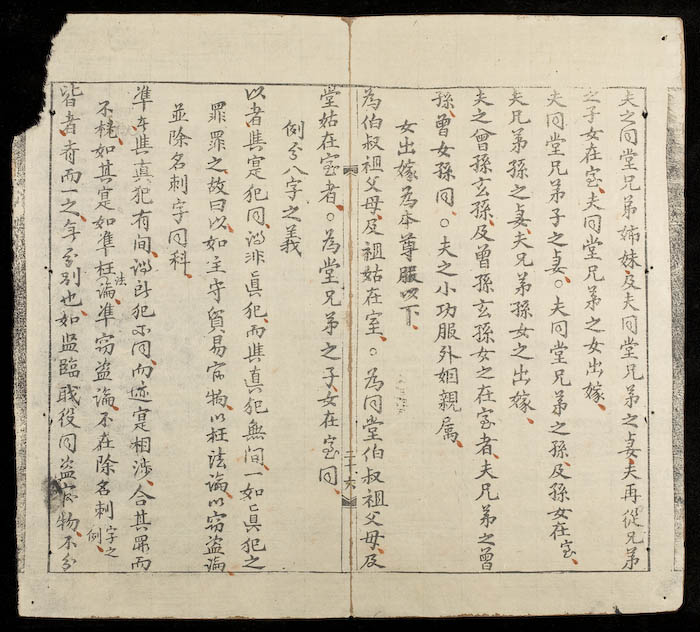 夫之同堂兄弟姊妹、及夫同堂兄弟之妻、夫再從兄弟
之子女在室、夫同堂兄弟之女出嫁、
夫同堂兄弟子之妻。夫同堂兄弟之孫、及孫女在室、
夫兄弟孫之妻、夫兄弟孫女之出嫁、
夫之曾孫玄孫、及曾孫玄孫女之在室者、夫兄弟之曾
孫、曾女孫同、。夫之小功服外姻親属、
女出嫁為本尊服以下、
為伯叔祖父母、及祖姑在室、。為同堂伯叔祖父母、及
二十六
堂姑在室者、。為堂兄弟之子女在室同、
例分八字之義
以者、與寔犯同、謂非眞犯、而與真犯無間、一如眞犯之
罪罪之、故曰以、如主守貿易官物、以枉法論、以窃盗論、
並除名刺字同科、
準者、與真犯有間、謂所犯不同、而迹寔相涉、合其罪而
不如其寔、如準枉法論、準窃盗論、不在除名刺字之例、
皆者、齐而一之、無分別也、如监臨職役同盗官物、不分